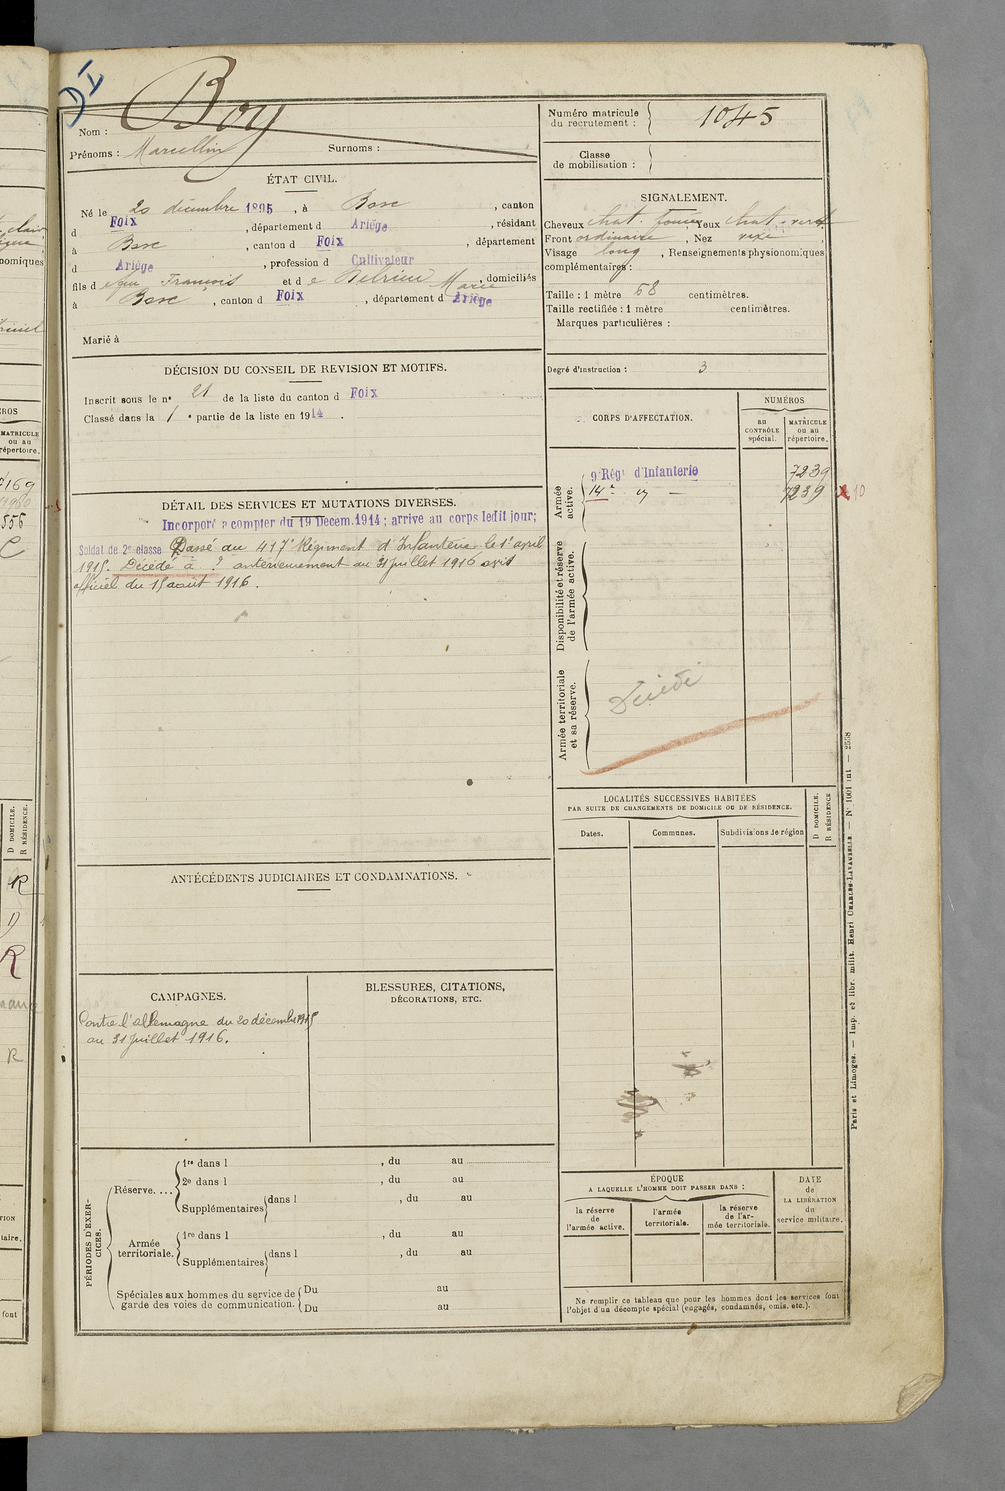 Boy
Nom :
Prénoms : Marcellin Surnoms :
ÉTAT CIVIL.
Né le 20 décembre 1895, à Bosc, canton
d Foix, département d Ariège, résidant
à Bosc, canton d Foix, département
d Ariège, profession d Cultivateur
fils d e feu François et d e Marie, domiciliés
à Bosc, canton d Foix, département d Ariège
Marié à
DÉCISION DU CONSEIL DE REVISION ET MOTIFS.
Inscrit sous le n° 21 de la liste du canton d Foix
Classé dans la 1e partie de la liste en 1914.
DÉTAIL DES SERVICES ET MUTATIONS DIVERSES.
Incorporé à compter du 19 Décem.1914 ; arrive au corps ledit jour;
Soldat de 2e classe Passé au 417e Régiment d'Infanterie le 1er avril
1915. Décédé à ? antérieurement au 31 juillet 1916 avis
officiel du 15 août 1916.
ANTÉCÉDENTS JUDICIAIRES ET CONDAMNATIONS.
CAMPAGNES.
Contre l'allemagne du 20 décembre
au 31 juillet 1916.
BLESSURES, CITATIONS,
DÉCORATIONS, ETC.
PÉRIODES D'EXER-
CICES.
Réserve. ...
1re dans l , du au
2e dans l , du au
Supplémentaires dans l , du au
Armée
territoriale.
1re dans l , du au
Supplémentaires dans l , du au
Spéciales aux hommes du service de
garde des voies de communication.
Du au
Du au
Numéro matricule
du recrutement : 1045
Classe
de mobilisation :
SIGNALEMENT.
Cheveux chat. foncé, Yeux chat. verdt
Front ordinaire, Nez vexe,
Visage long, Renseignements physionomiques
complémentaires :
Taille : 1 mètre 68 centimètres.
Taille rectifiée : 1 mètre centimètres.
Marques particulières :
Degré d'instruction : 3
CORPS D'AFFECTATION.
NUMÉROS
au
CONTRÔLE
spécial.
MATRICULE
ou au
répertoire.
Armée
active.
9e Régt d'Infanterie 7239
14e 7239
Disponibilité et réserve
de l'armée active.
Armée territoriale
et sa réserve.
Décédé
LOCALITÉS SUCCESSIVES HABITÉES
PAR SUITE DE CHANGEMENTS DE DOMICILE OU DE RÉSIDENCE.
Dates.
Communes.
Subdivisions de région
D DOMICILE.
R RÉSIDENCE
ÉPOQUE
A LAQUELLE L'HOMME DOIT PASSER DANS :
la réserve
de
l'armée active.
l'armée
territoriale.
la réserve
de l'ar-
mée territoriale.
DATE
de
LA LIBÉRATION
du
service militaire.
Ne remplir ce tableau que pour les hommes dont les services font
l'objet d'un décompte spécial (engagés, condamnés, omis, etc.).
Paris et Limoges. — Imp. et libr. milit. Henri CHARLES-LAVAUZELLE. — N° 1001 int — 2558
nomiques
MATRICULE
ou au
répertoire.
D DOMICILE.
R RÉSIDENCE.
R
D
R
R
font